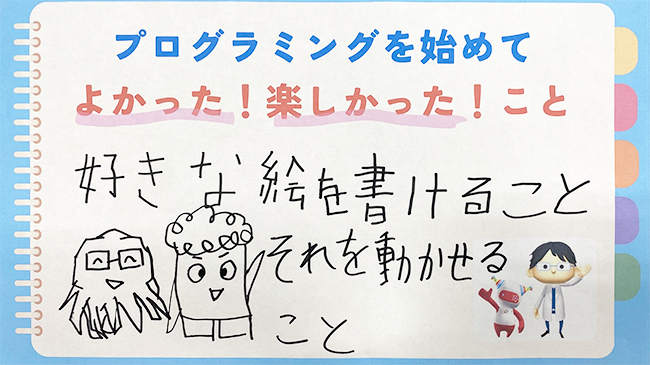 プログラミングを始めて
よかった！楽しかった！こと
好きな絵を書けること
それを動かせる
こと